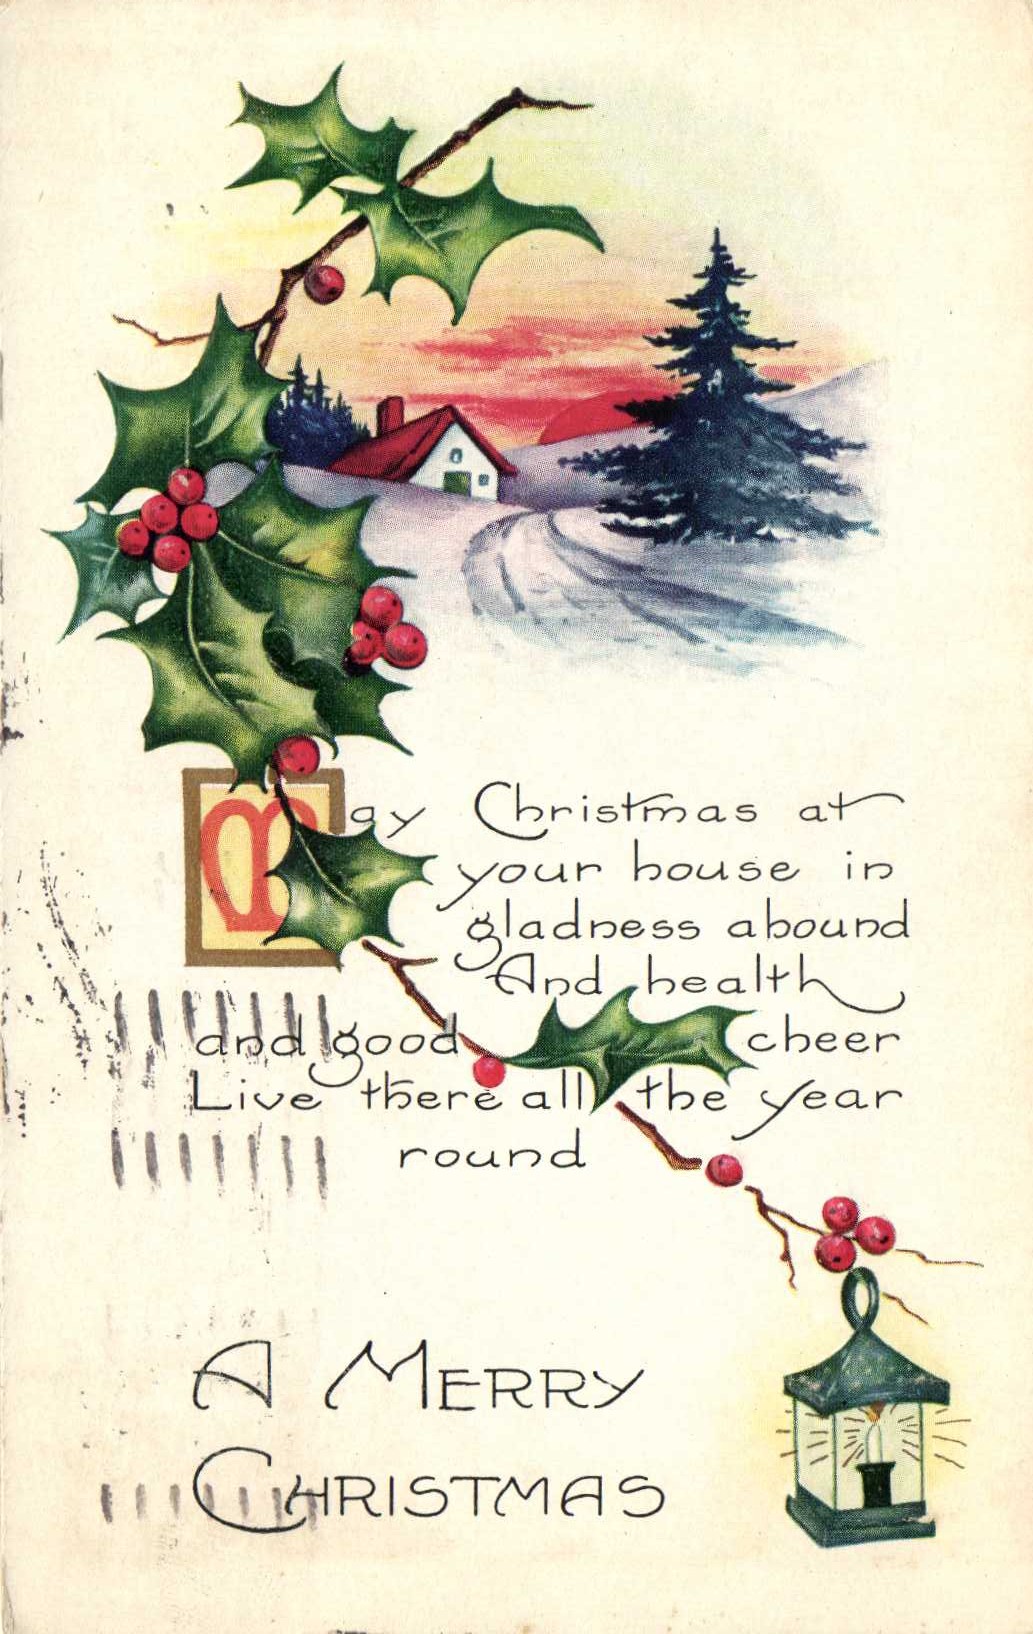 May Christmas at
your house in
gladness abound
And health
and good cheer
Live there all the year
round
A MERRY
CHRISTMAS